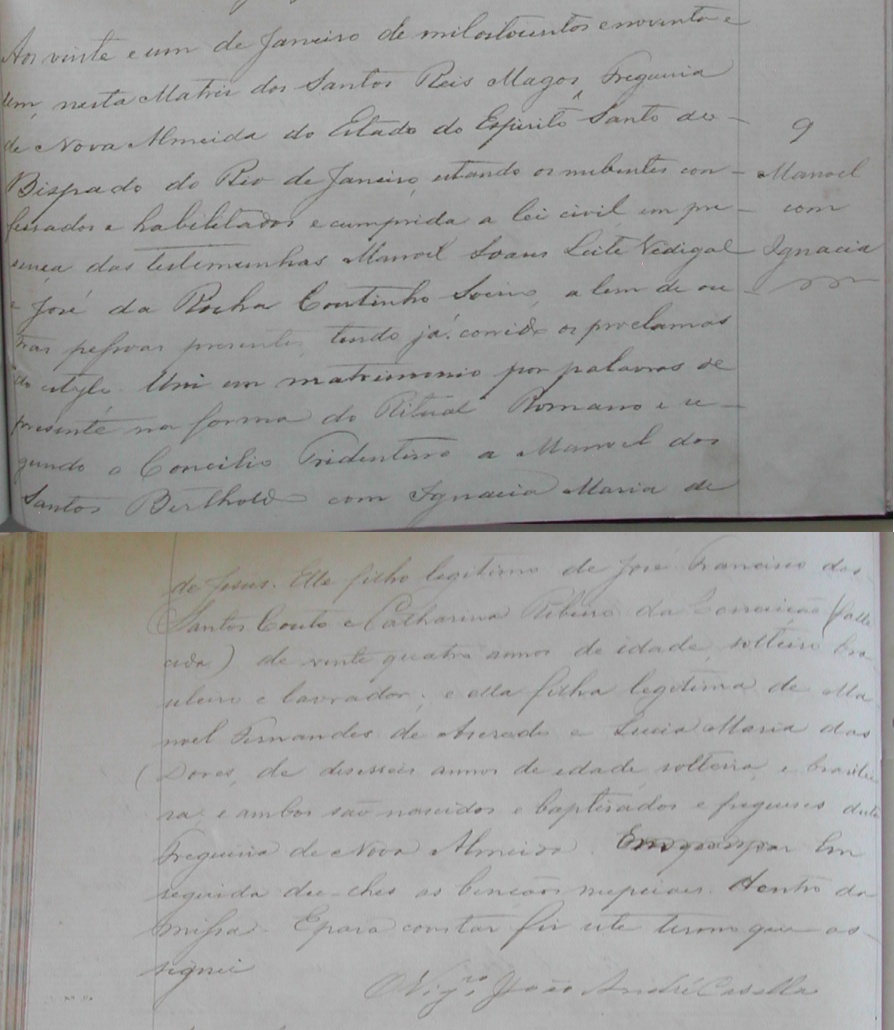 Aos vinte e um de Janeiro de mil oitocentos e noventa e
um, nesta Matriz dos Santos Reis Magos Freguesia
de Nova Almeida do Estado do Espirito Santo do
Bispado do Rio de Janeiro, estando os nubentes con-
fessados e habilitados e cumprida a lei civil em pre-
sença das testemunhas Manoel Soares Leite Vidigal
e José da Rocha Coutinho, alem de ou-
tras pessoas presentes, tendo já corrido os proclamas
do estylo. Uni em matrimonio por palavras de
presente na forma do Ritual Romano e se-
gundo o Concilio Tridentino a Manoel dos
Santos Berthold com Ignacia Maria de
9
Manoel
com
Ignacia
de Jesus. Elle filho legitimo de José Francisco dos
Santos Couto e Catharina Ribeiro da Conceição (falle
cida) de vinte quatro annos de idade, solteiro bra-
sileiro e lavrador; e ella filha legitima de Ma
noel Fernandes de Azeredo e Lucia Maria das
Dores, de deseseis annos de idade solteira, e brasilei
ra, e ambos são nascidos e baptisados e fregueses desta
Freguesia de Nova Almeida. Em
seguida dei-lhes as bençãos nupciaes dentro da
missa. E para constar fiz este termo que as-
signei
O Vigro João André Casella